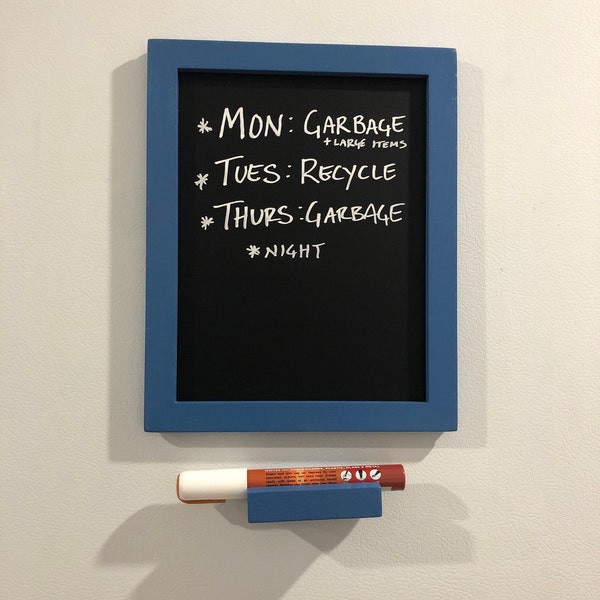 * MON: GARBAGE
+ LARGE ITEMS
* TUES: RECYCLE
* THURS: GARBAGE
* NIGHT